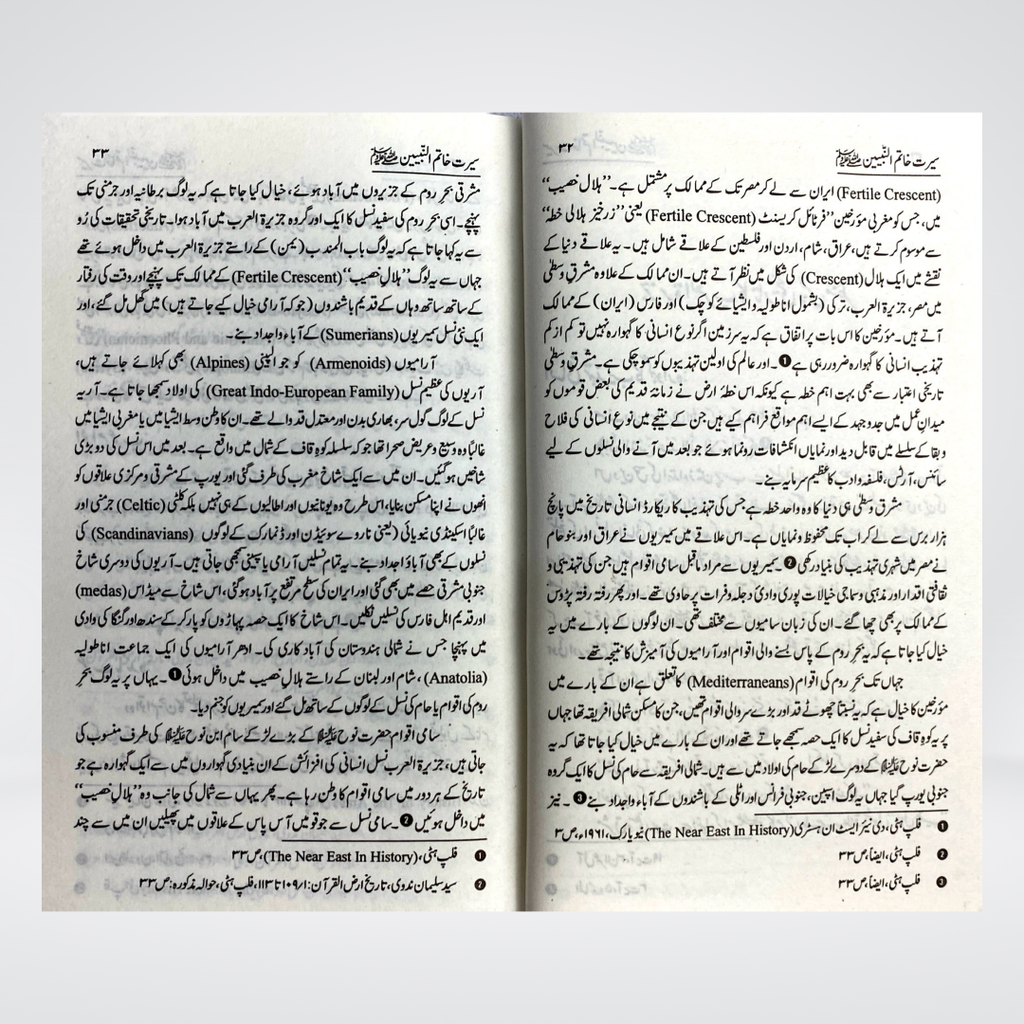 سیرت خاتم النّبیین ﷺ ۳۲
(Fertile Crescent) ایران سے لے کر مصر تک کے ممالک پر مشتمل ہے۔ ’’ہلال خصیب‘‘
میں، جس کو مغربی مؤرخین ’’فرٹائل کریسنٹ (Fertile Crescent) یعنی ’’زرخیز ہلالی خطہ‘‘
سے موسوم کرتے ہیں، عراق، شام، اردن اور فلسطین کے علاقے شامل ہیں۔ یہ علاقے دنیا کے
نقشے میں ایک ہلال (Crescent) کی شکل میں نظر آتے ہیں۔ ان ممالک کے علاوہ مشرقِ وسطیٰ
میں مصر، جزیرۃ العرب، ترکی (بشمول اناطولیہ و ایشیائے کوچک) اور فارس (ایران) کے ممالک
آتے ہیں۔ مؤرخین کا اس بات پر اتفاق ہے کہ یہ سرزمین اگر نوع انسانی کا گہوارہ نہیں تو کم از کم
تہذیب انسانی کا گہوارہ ضرور رہی ہے ❶۔ اور عالم کی اولین تہذیبوں کو سموچکی ہے۔ مشرقِ وسطیٰ
تاریخی اعتبار سے بھی بہت اہم خطہ ہے کیونکہ اس خطۂ ارض نے زمانۂ قدیم کی بعض قوموں کو
میدانِ عمل میں جدوجہد کے ایسے اہم مواقع فراہم کیے ہیں، جن کے نتیجے میں نوعِ انسانی کی فلاح
و بقا کے سلسلے میں قابل دید اور نمایاں انکشافات رونما ہوئے جو بعد میں آنے والی نسلوں کے لیے
سائنس، آرٹس، فلسفہ و ادب کا عظیم سرمایہ بنے۔
مشرق وسطیٰ ہی دنیا کا وہ واحد خطہ ہے جس کی تہذیب کا ریکارڈ انسانی تاریخ میں پانچ
ہزار برس سے لے کر اب تک محفوظ و نمایاں ہے۔ اس علاقے میں سمیریوں نے عراق اور بنو حام
نے مصر میں شہری تہذیب کی بنیاد رکھی ❷۔ سمیریوں سے مراد ماقبل سامی اقوام ہیں جن کی تہذیبی و
ثقافتی اقدار اور مذہبی و سماجی خیالات پوری وادیٔ دجلہ و فرات پر حاوی تھے۔ اور پھر رفتہ رفتہ پڑوس
کے ممالک پر بھی چھا گئے۔ ان کی زبان سامیوں سے مختلف تھی۔ ان لوگوں کے بارے میں یہ
خیال کیا جاتا ہے کہ یہ بحرِ روم کے پاس بسنے والی اقوام اور آرامیوں کی آمیزش کا نتیجہ تھے۔
جہاں تک بحرِ روم کی اقوام (Mediterraneans) کا تعلق ہے ان کے بارے میں
مؤرخین کا خیال ہے کہ یہ نسبتاً چھوٹے قد اور بڑے سر والی اقوام تھیں، جن کا مسکن شمالی افریقہ تھا جہاں
پر یہ کوہِ قاف کی سفید نسل کا ایک حصہ سمجھے جاتے تھے اور ان کے بارے میں خیال کیا جاتا تھا کہ یہ
حضرت نوح علیہ السلام کے دوسرے لڑکے حام کی اولاد میں سے ہیں۔ شمالی افریقہ سے حام کی نسل کا ایک گروہ
جنوبی یورپ گیا جہاں یہ لوگ اسپین، جنوبی فرانس اور اٹلی کے باشندوں کے آباء و اجداد بنے ❸۔ نیز
❶ فلپ ہٹی، دی نیئر ایسٹ ان ہسٹری (The Near East In History) نیویارک، ۱۹۶۱ء، ص ۳
❷ فلپ ہٹی، ایضاً، ص ۳۳
❸ فلپ ہٹی، ایضاً، ص ۳۳
سیرت خاتم النّبیین ﷺ ۳۳
مشرقی بحرِ روم کے جزیروں میں آباد ہوئے، خیال کیا جاتا ہے کہ یہ لوگ برطانیہ اور جرمنی تک
پہنچے۔ اسی بحرِ روم کی سفید نسل کا ایک اور گروہ جزیرۃ العرب میں آباد ہوا۔ تاریخی تحقیقات کی رُو
سے یہ کہا جاتا ہے کہ یہ لوگ باب المندب (یمن) کے راستے جزیرۃ العرب میں داخل ہوئے تھے
جہاں سے یہ لوگ ’’ہلالِ خصیب‘‘ (Fertile Crescent) کے ممالک تک پہنچے اور وقت کی رفتار
کے ساتھ ساتھ وہاں کے قدیم باشندوں (جو کہ آرامی خیال کیے جاتے ہیں) میں گھل مل گئے، اور
ایک نئی نسل سمیریوں (Sumerians) کے آباء و اجداد بنے۔
آرامیوں (Armenoids) کو جو الپینی (Alpines) بھی کہلائے جاتے ہیں،
آریوں کی عظیم نسل (Great Indo-European Family) کی اولاد سمجھا جاتا ہے۔ آریہ
نسل کے لوگ گول سر، بھاری بدن اور معتدل قد والے تھے۔ ان کا وطن وسط ایشیا میں یا مغربی ایشیا میں
غالباً وہ وسیع و عریض صحرا تھا جو کہ سلسلہ کوہِ قاف کے شمال میں واقع ہے۔ بعد میں اس نسل کی دو بڑی
شاخیں ہوگئیں۔ ان میں سے ایک شاخ مغرب کی طرف گئی اور یورپ کے مشرقی و مرکزی علاقوں کو
انھوں نے اپنا مسکن بنایا، اس طرح وہ یونانیوں اور اطالیوں کے ہی نہیں بلکہ کلٹی (Celtic) جرمنی اور
غالباً اسکینڈی نیویائی (یعنی ناروے سویڈن اور ڈنمارک کے لوگوں (Scandinavians) کی
نسلوں کے بھی آباؤ اجداد بنے۔ یہ تمام نسلیں آرامی یا سپینی سمجھی جاتی ہیں۔ آریوں کی دوسری شاخ
جنوبی مشرقی حصے میں بھی گئی اور ایران کی سطح مرتفع پر آباد ہوگئی، اس شاخ سے میڈاس (medas)
اور قدیم اہل فارس کی نسلیں نکلیں۔ اس شاخ کا ایک حصہ پہاڑوں کو پار کرکے سندھ اور گنگا کی وادی
میں پہنچا جس نے شمالی ہندوستان کی آباد کاری کی۔ ادھر آرامیوں کی ایک جماعت اناطولیہ
(Anatolia)، شام اور لبنان کے راستے ہلالِ خصیب میں داخل ہوئی ❶۔ یہاں پر یہ لوگ بحرِ
روم کی اقوام یا حام کی نسل کے لوگوں کے ساتھ مل گئے اور سمیریوں کو جنم دیا۔
سامی اقوام حضرت نوح علیہ السلام کے بڑے لڑکے سام ابن نوح علیہ السلام کی طرف منسوب کی
جاتی ہیں، جزیرۃ العرب نسل انسانی کی افزائش کے ان بنیادی گہواروں میں سے ایک گہوارہ ہے جو
تاریخ کے ہر دور میں سامی اقوام کا وطن رہا ہے۔ پھر یہاں سے شمال کی جانب وہ ’’ہلالِ خصیب‘‘
میں داخل ہوئیں ❷۔ سامی نسل سے جو قومیں آس پاس کے علاقوں میں پھیلیں ان میں سے چند
❶ فلپ ہٹی، (The Near East In History)، ص ۳۳
❷ سید سلیمان ندوی، تاریخ ارض القرآن: ۱/۱۰۹ تا ۱۱۳، فلپ ہٹی، حوالہ مذکورہ: ص ۳۳